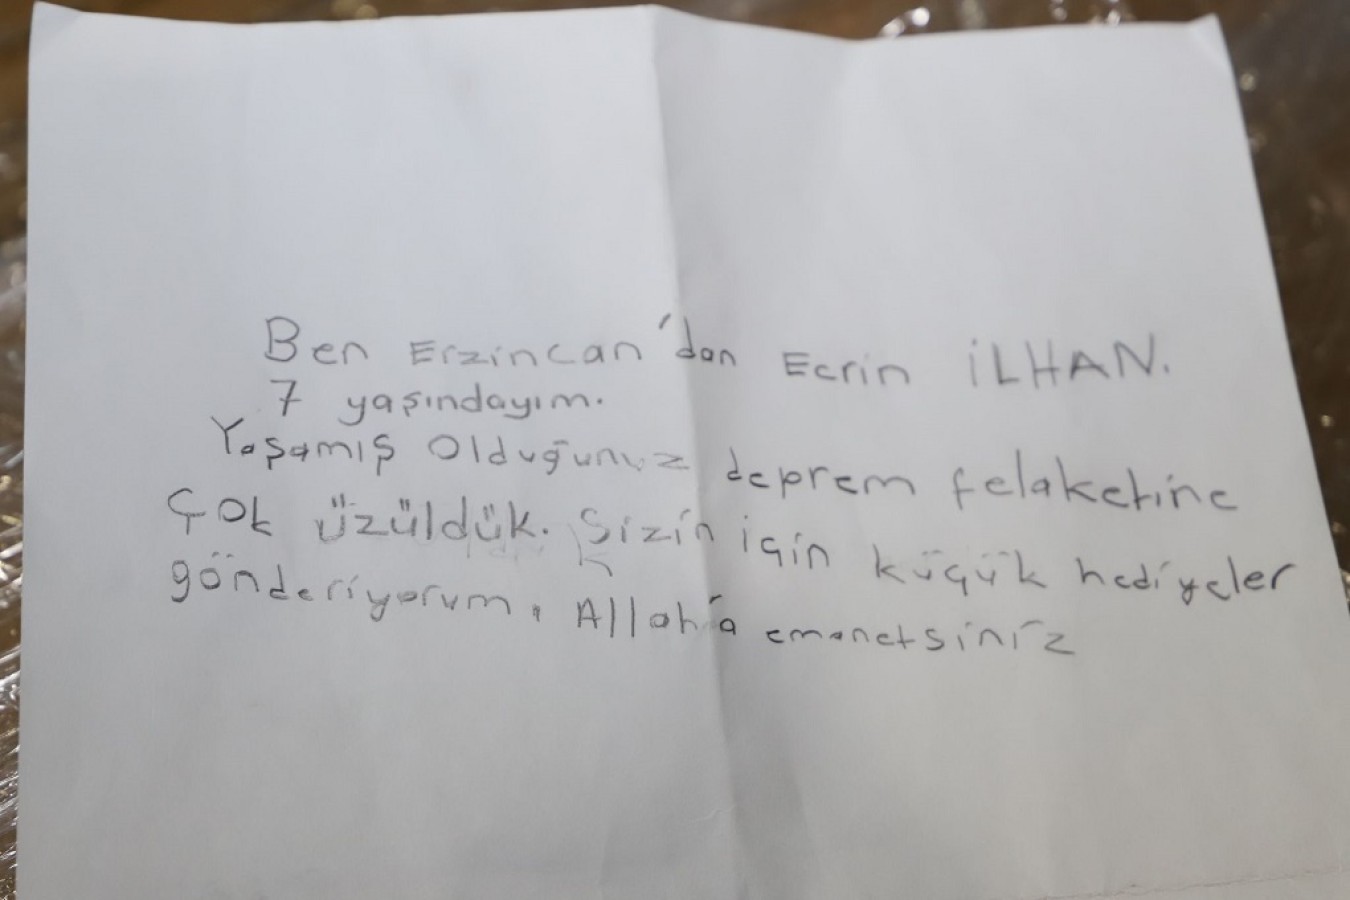 Ben Erzincan'dan Ecrin İLHAN.
7 yaşındayım.
Yaşamış Olduğunuz deprem felaketine
Çok üzüldük. Sizin için küçük hediyeler
gönderiyorum. Allah'a emanetsiniz